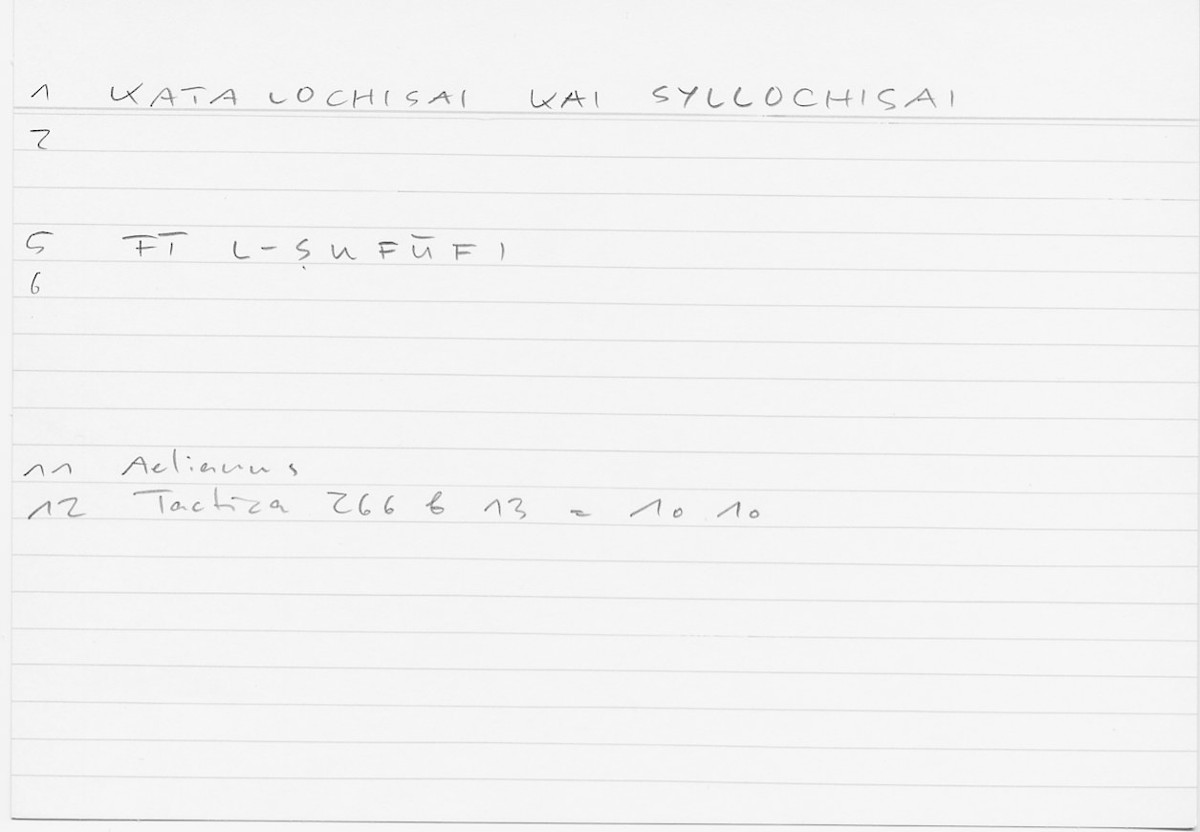 1 KATA LOCHISAI KAI SYLLOCHISAI
2
5 FĪ L-ṢUFŪFI
6
11 Aelianus
12 Tactica 266 b 13 = 10 10